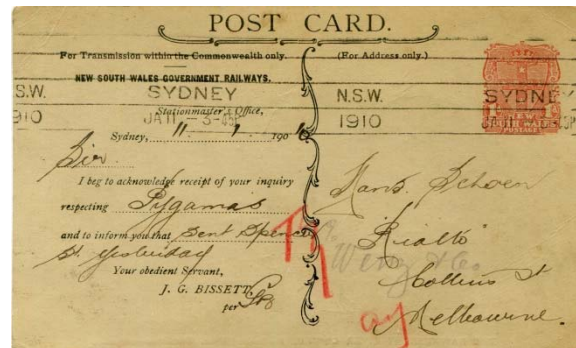 POST CARD.
For Transmission within the Commonwealth only.
(For Address only.)
NEW SOUTH WALES GOVERNMENT RAILWAYS.
N.S.W. SYDNEY N.S.W. SYDNEY
1910 JA 11 1910 JA 11
Stationmaster's Office,
Sydney, 11 1 190
Sir
I beg to acknowledge receipt of your inquiry
respecting Pygamas
and to inform you that sent Spencer
St. yesterday
Your obedient Servant,
J. G. BISSETT,
per
POSTAGE
Hans Schoen
Rialto
Wenz & Co.
Collins St
Melbourne.